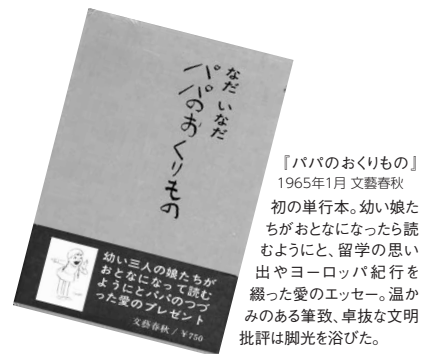 なだ いなだ
パパのおくりもの
幼い三人の娘たちが
おとなになって読む
ようにとパパのつづ
った愛のプレゼント
文藝春秋／￥750
『パパのおくりもの』
1965年1月 文藝春秋
初の単行本。幼い娘た
ちがおとなになったら読
むようにと、留学の思い
出やヨーロッパ紀行を
綴った愛のエッセー。温か
みのある筆致、卓抜な文明
批評は脚光を浴びた。